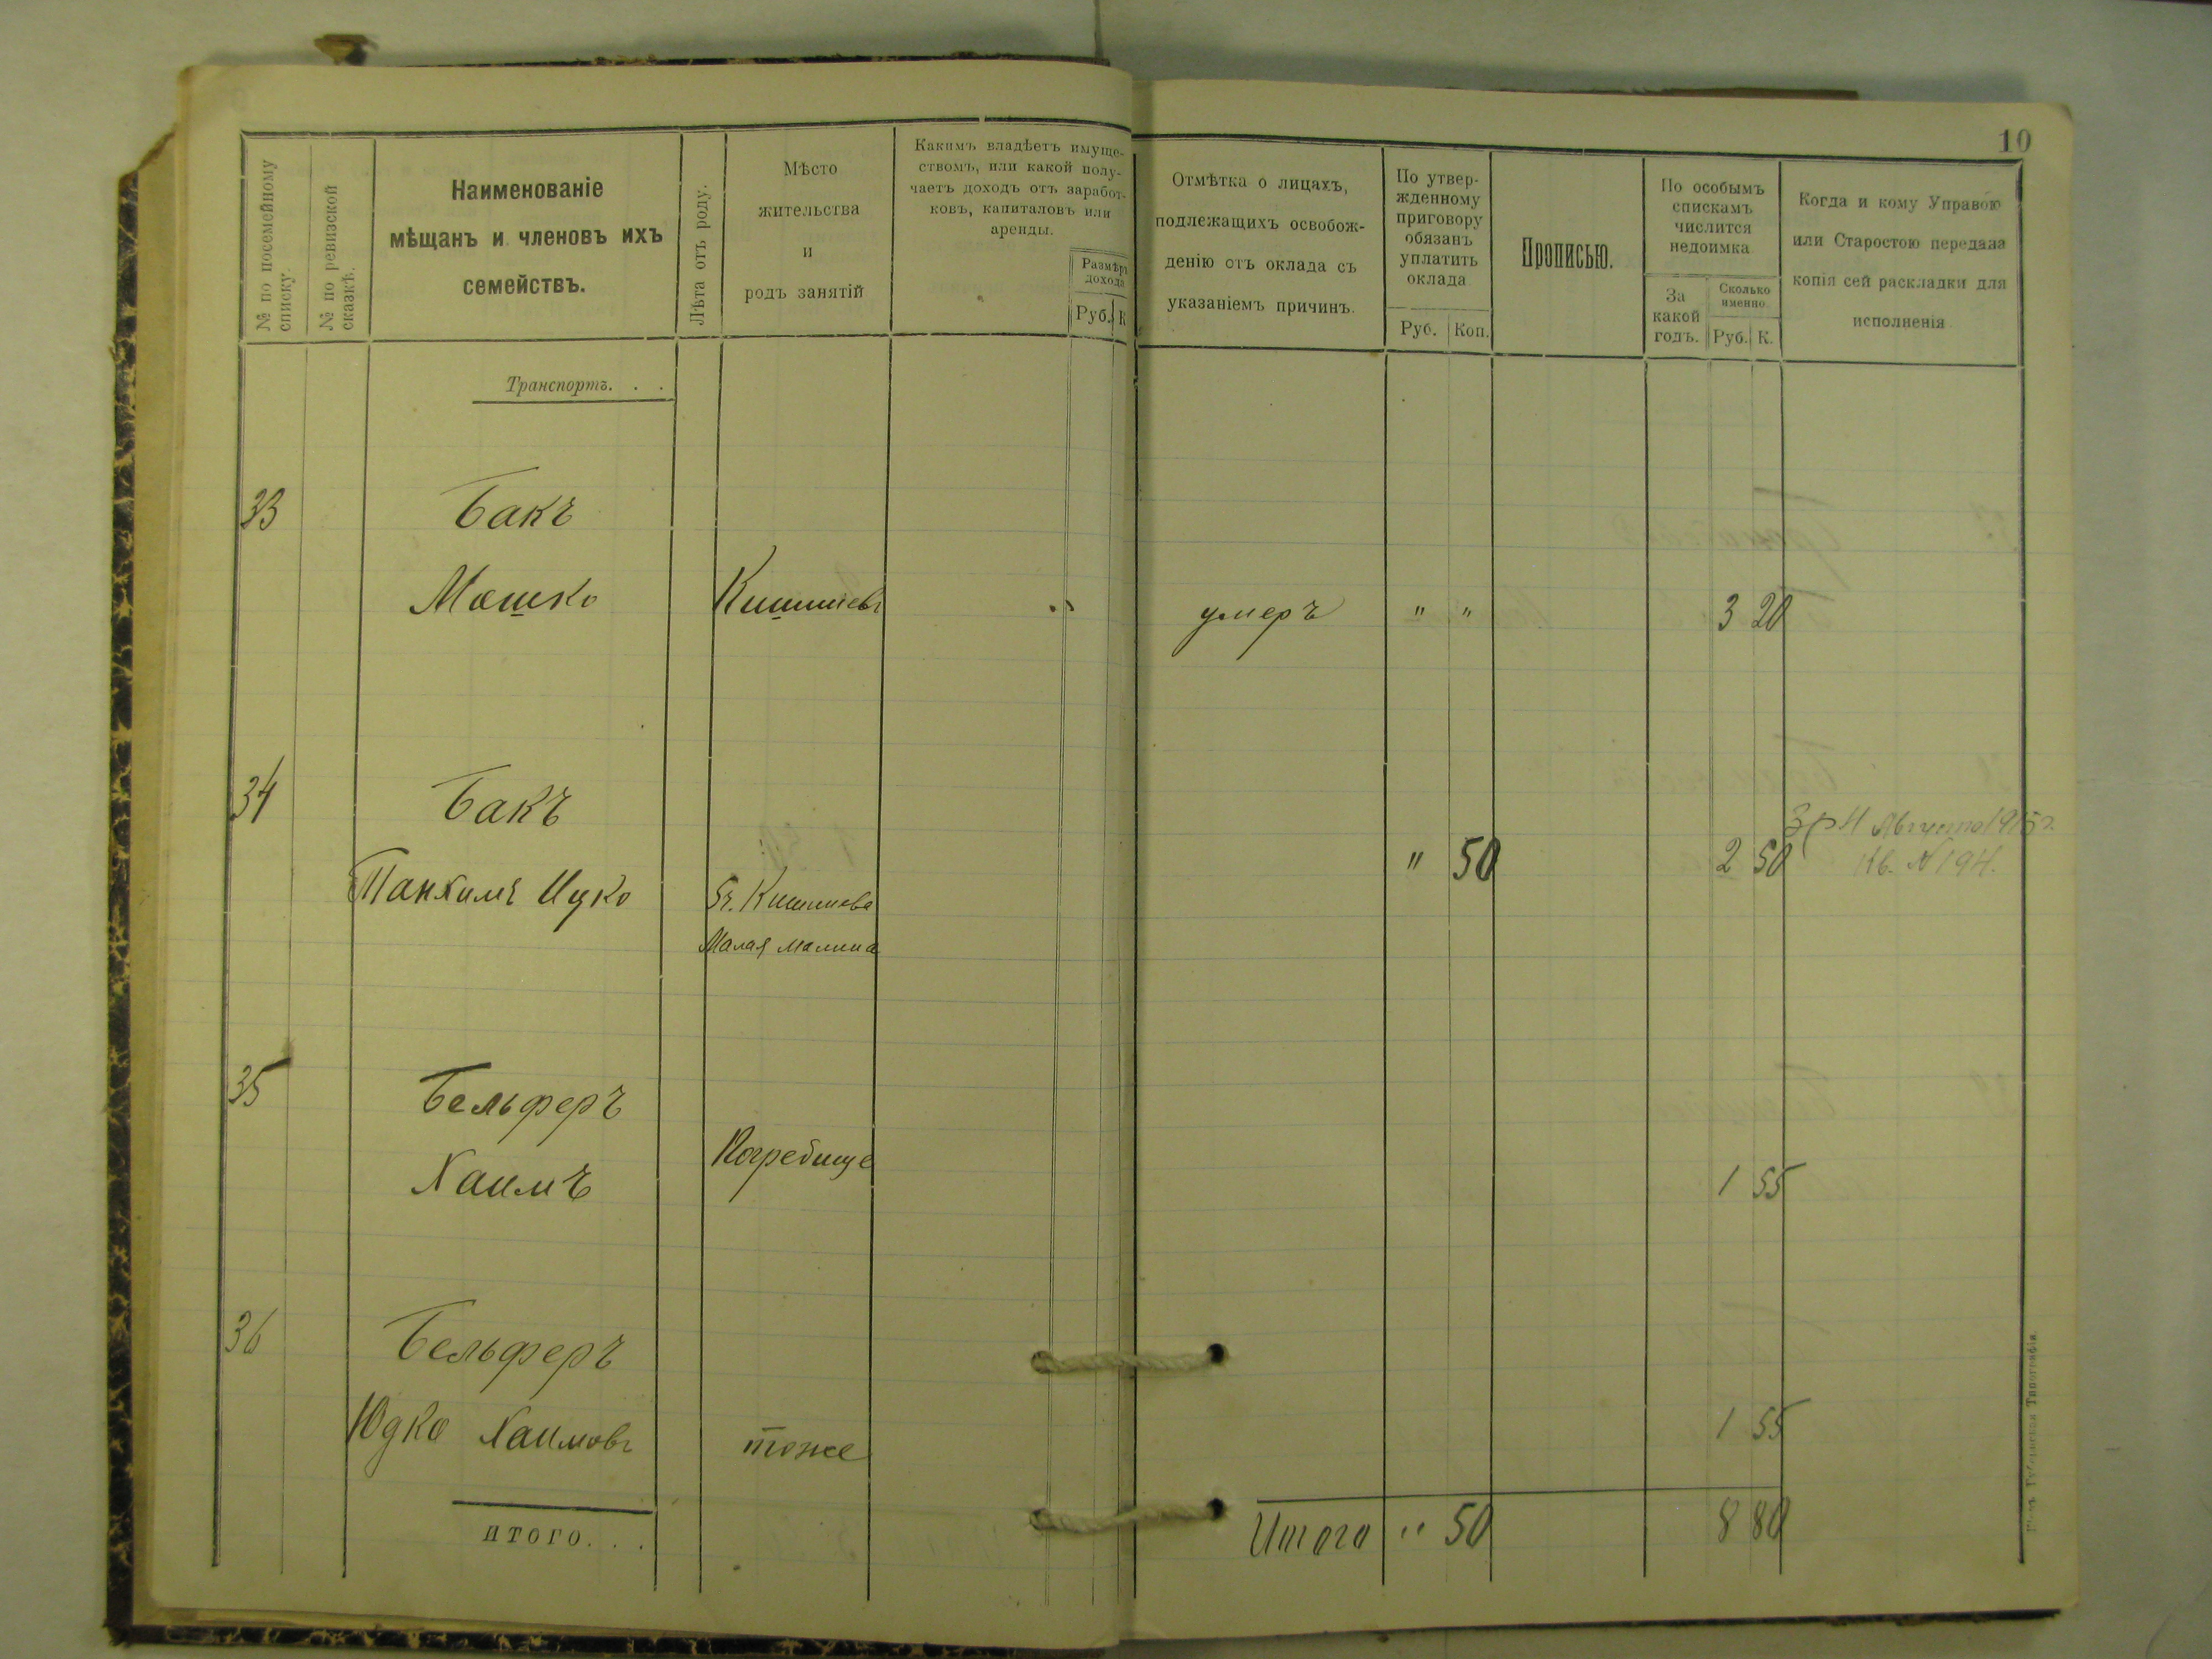 10
№ по посемейному списку.
№ по ревизской сказкѣ.
Наименованіе
мѣщанъ и членовъ ихъ
семействъ.
Лѣта отъ роду.
Мѣсто
жительства
и
родъ занятій
Какимъ владѣетъ имуще-
ствомъ, или какой полу-
чаетъ доходъ отъ заработ-
ковъ, капиталовъ или
аренды.
Размѣръ
дохода
Руб. К
Отмѣтка о лицахъ,
подлежащихъ освобож-
денію отъ оклада съ
указаніемъ причинъ.
По утвер-
жденному
приговору
обязанъ
уплатить
оклада
Руб. Коп.
Прописью.
По особымъ
спискамъ
числится
недоимка
За
какой
годъ.
Сколько
именно.
Руб. К.
Когда и кому Управою
или Старостою передана
копія сей раскладки для
исполненія
Транспортъ. . .
33 Бакъ
Мошко Кишиневъ " умеръ " " 3 20
34 Бакъ
3 р 4 Августа 1915 г.
" 50 2 50 Кв. № 194.
Танхимъ Ицко Гг. Кишинева
Малая Малина
35 Бельферъ
Хаимъ Погребище 1 55
36 Бельферъ
Юдко Хаимовъ тоже 1 55
итого. . . Итого " 50 8 80